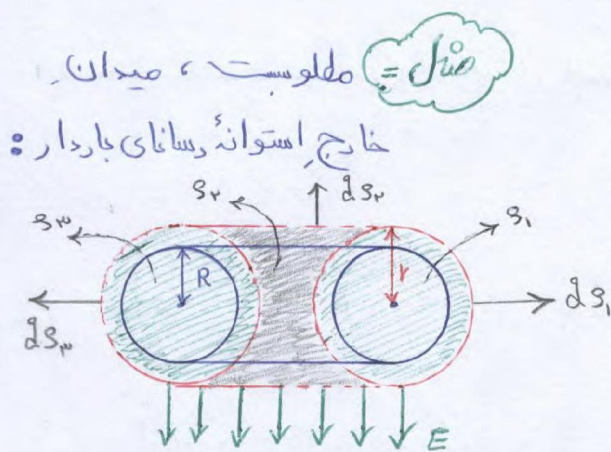 مثال = مطلوبست ، میدان ِ
خارج ِ استوانهٔ رسانای باردار :
dS₂
S₂
S₃
S₁
R
r
dS₃
dS₁
E